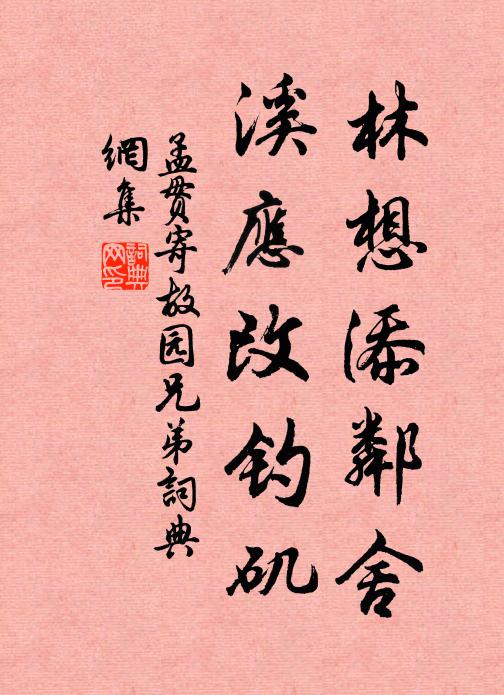 林想添鄰舍
溪應改釣矶
孟貫寄故园兄弟詞典
網集
詞典
网印